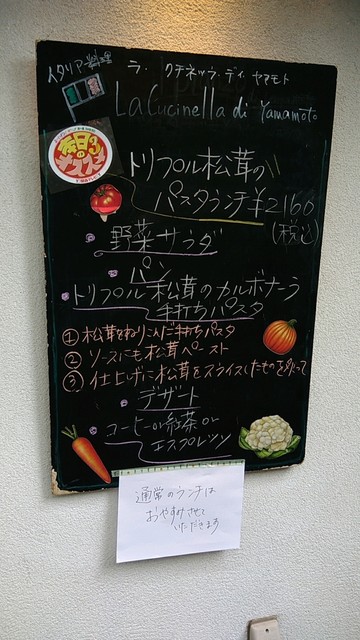 イタリアー料理
ラ・クチネッラ・ディ・ヤマモト
La Cucinella di Yamamoto
トリプル松茸の
パスタランチ¥2160
(税込)
野菜サラダ
パン
トリプル松茸のカルボナーラ
手打ちパスタ
①松茸をねりこんだ手打ちパスタ
②ソースにも松茸ペースト
③仕上げに松茸をスライスしたものを
デザート
コーヒーor紅茶or
エスプレッソ
通常のランチは
おやすみさせて
いただきます